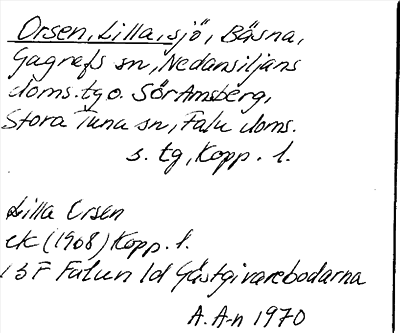 Orsen, Lilla, sjö, Bäsna,
Gagnefs sn, Nedansiljans
doms. tg o. Sör Amsberg,
Stora Tuna sn, Falu doms.
s. tg, Kopp. l.
Lilla Orsen
ek (1908) Kopp. l.
13 F Falun ld Gästgivarebodarna
A. A-n 1970